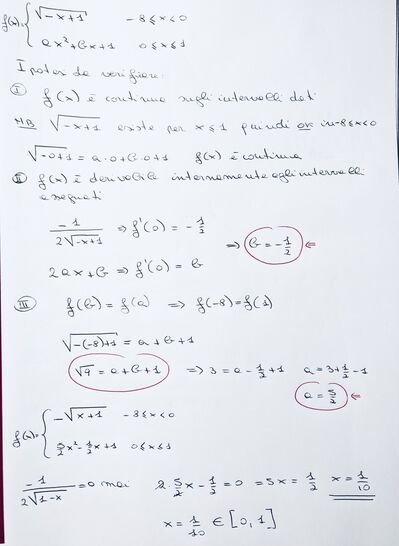 f(x)= { √-x+1   -8≤x<0
ax²+bx+1   0≤x≤1
Ipotesi da verificare:
I f(x) è continua sugli intervalli dati
NB √-x+1 esiste per x≤1 quindi ok in -8≤x<0
√-0+1 = a·0+b·0+1   f(x) è continua
II f(x) è derivabile internamente agli intervalli
assegnati
-1/2√-x+1 ⇒ f'(0) = -1/2
⇒ b = -1/2 ⇐
2ax+b ⇒ f'(0) = b
III f(b) = f(a) ⇒ f(-8) = f(1)
√-(-8)+1 = a+b+1
√9 = a+b+1 ⇒ 3 = a-1/2+1   a = 3+1/2-1
a = 5/2 ⇐
f(x)= { -√x+1   -8≤x<0
5/2x²-1/2x+1   0≤x≤1
-1/2√1-x = 0 mai   2·5/2x-1/2=0 =5x=1/2   x=1/10
x=1/10 ∈ [0,1]